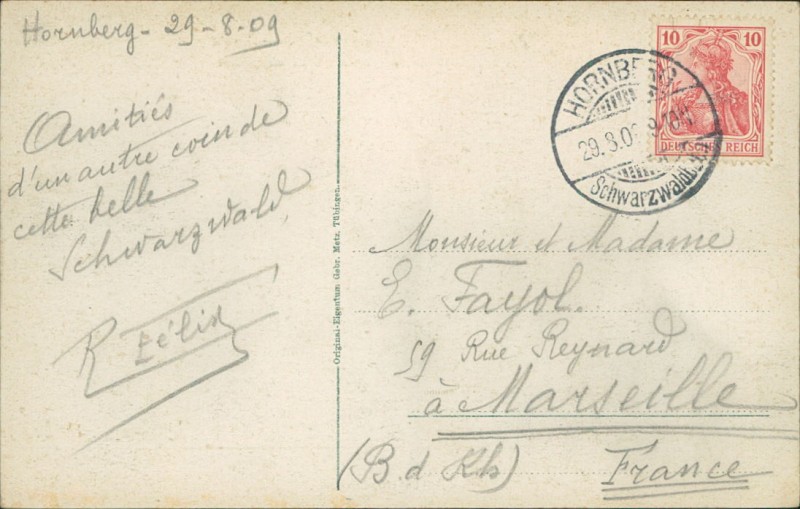 Hornberg - 29-8-09
Amitiés
d'un autre coin de
cette belle
Schwarzwald,
R Félix
Original-Eigentum Gebr. Metz, Tübingen.
10 10
DEUTSCHES REICH
HORNBERG
29.8.09 9-10V.
Schwarzwaldbahn
Monsieur et Madame
E. Fayol.
59 Rue Reynard
à Marseille
(B d Rh)
France